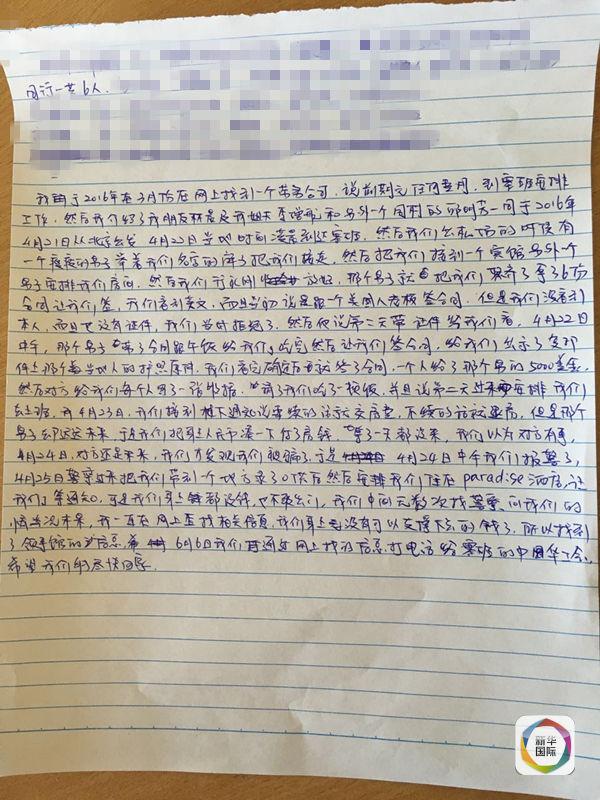 同行一共6人.
我由于2016年在3月份在网上找到一个劳务公司,说前期无任何费用,到塞班安排
工作,然后我们叫了我朋友 及我姐夫 和另外一个同村的 一同于2016年
4月21日从北京出发 4月22日当地时间凌晨到达塞班,然后我们出机场的时候有
一个瘦瘦的男子举着我们名字的牌子把我们接走,然后把我们接到一个宾馆另外一个
男子安排我们房间,然后我们 那个男子就把我们 拿了6份
合同让我们签,我们看到英文,而且当初说是跟一个美国人老板签合同,但是我们没看到
本人,而且也没有证件,我们当时拒绝了,然后他说第二天带证件给我们看,4月22日
中午,那个男子带了合同跟午饭给我们,吃完然后让我们签合同,给我们出示了复印
件上那个 人的护照原件,我们看完确认后就签了合同,一个人给了那个男的5000美金,
然后对方给我们每个人写了一张收据,请我们吃了一顿饭,并且说第二天过来安排我们
去上班,到4月23日,我们接到楼下通知说要续的话就交房费,不续的话就退房,但是那个
男子却迟迟未来,于是我们把身上人民币凑一下付了房钱,等了一天都没来,我们以为对方有事,
4月24日,对方还是未来,我们才发现我们被骗了,于是 4月24日中午我们报警了,
4月25日警察过来把我们带到一个地方录了口供后然后安排我们住在paradise酒店,让
我们等通知,可是我们身上都没钱,也不敢出门,我们中间无数次找警察问我们的
事 没结果,我一直在网上查找相关信息,我们身上也没有可以支撑下去的钱了,所以找到
了领事馆的 信息, 6月6日我们通过网上找的信息,打电话给塞班的中国华人会,
希望我们能尽快回家.
新华
国际